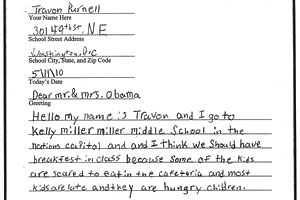 Travon Purnell
Your Name Here
301 49th st. NE
School Street Address
Washington, DC
School City, State, and Zip Code
5/11/10
Today's Date
Dear mr. & mrs. Obama
Greeting
Hello my name is Travon and I go to
Kelly miller miller middle School in the
nations capitol and and I think we should have
breakfest in class because some of the kids
are scared to eat in the cafeteria and most
kids are late and they are hungry children.